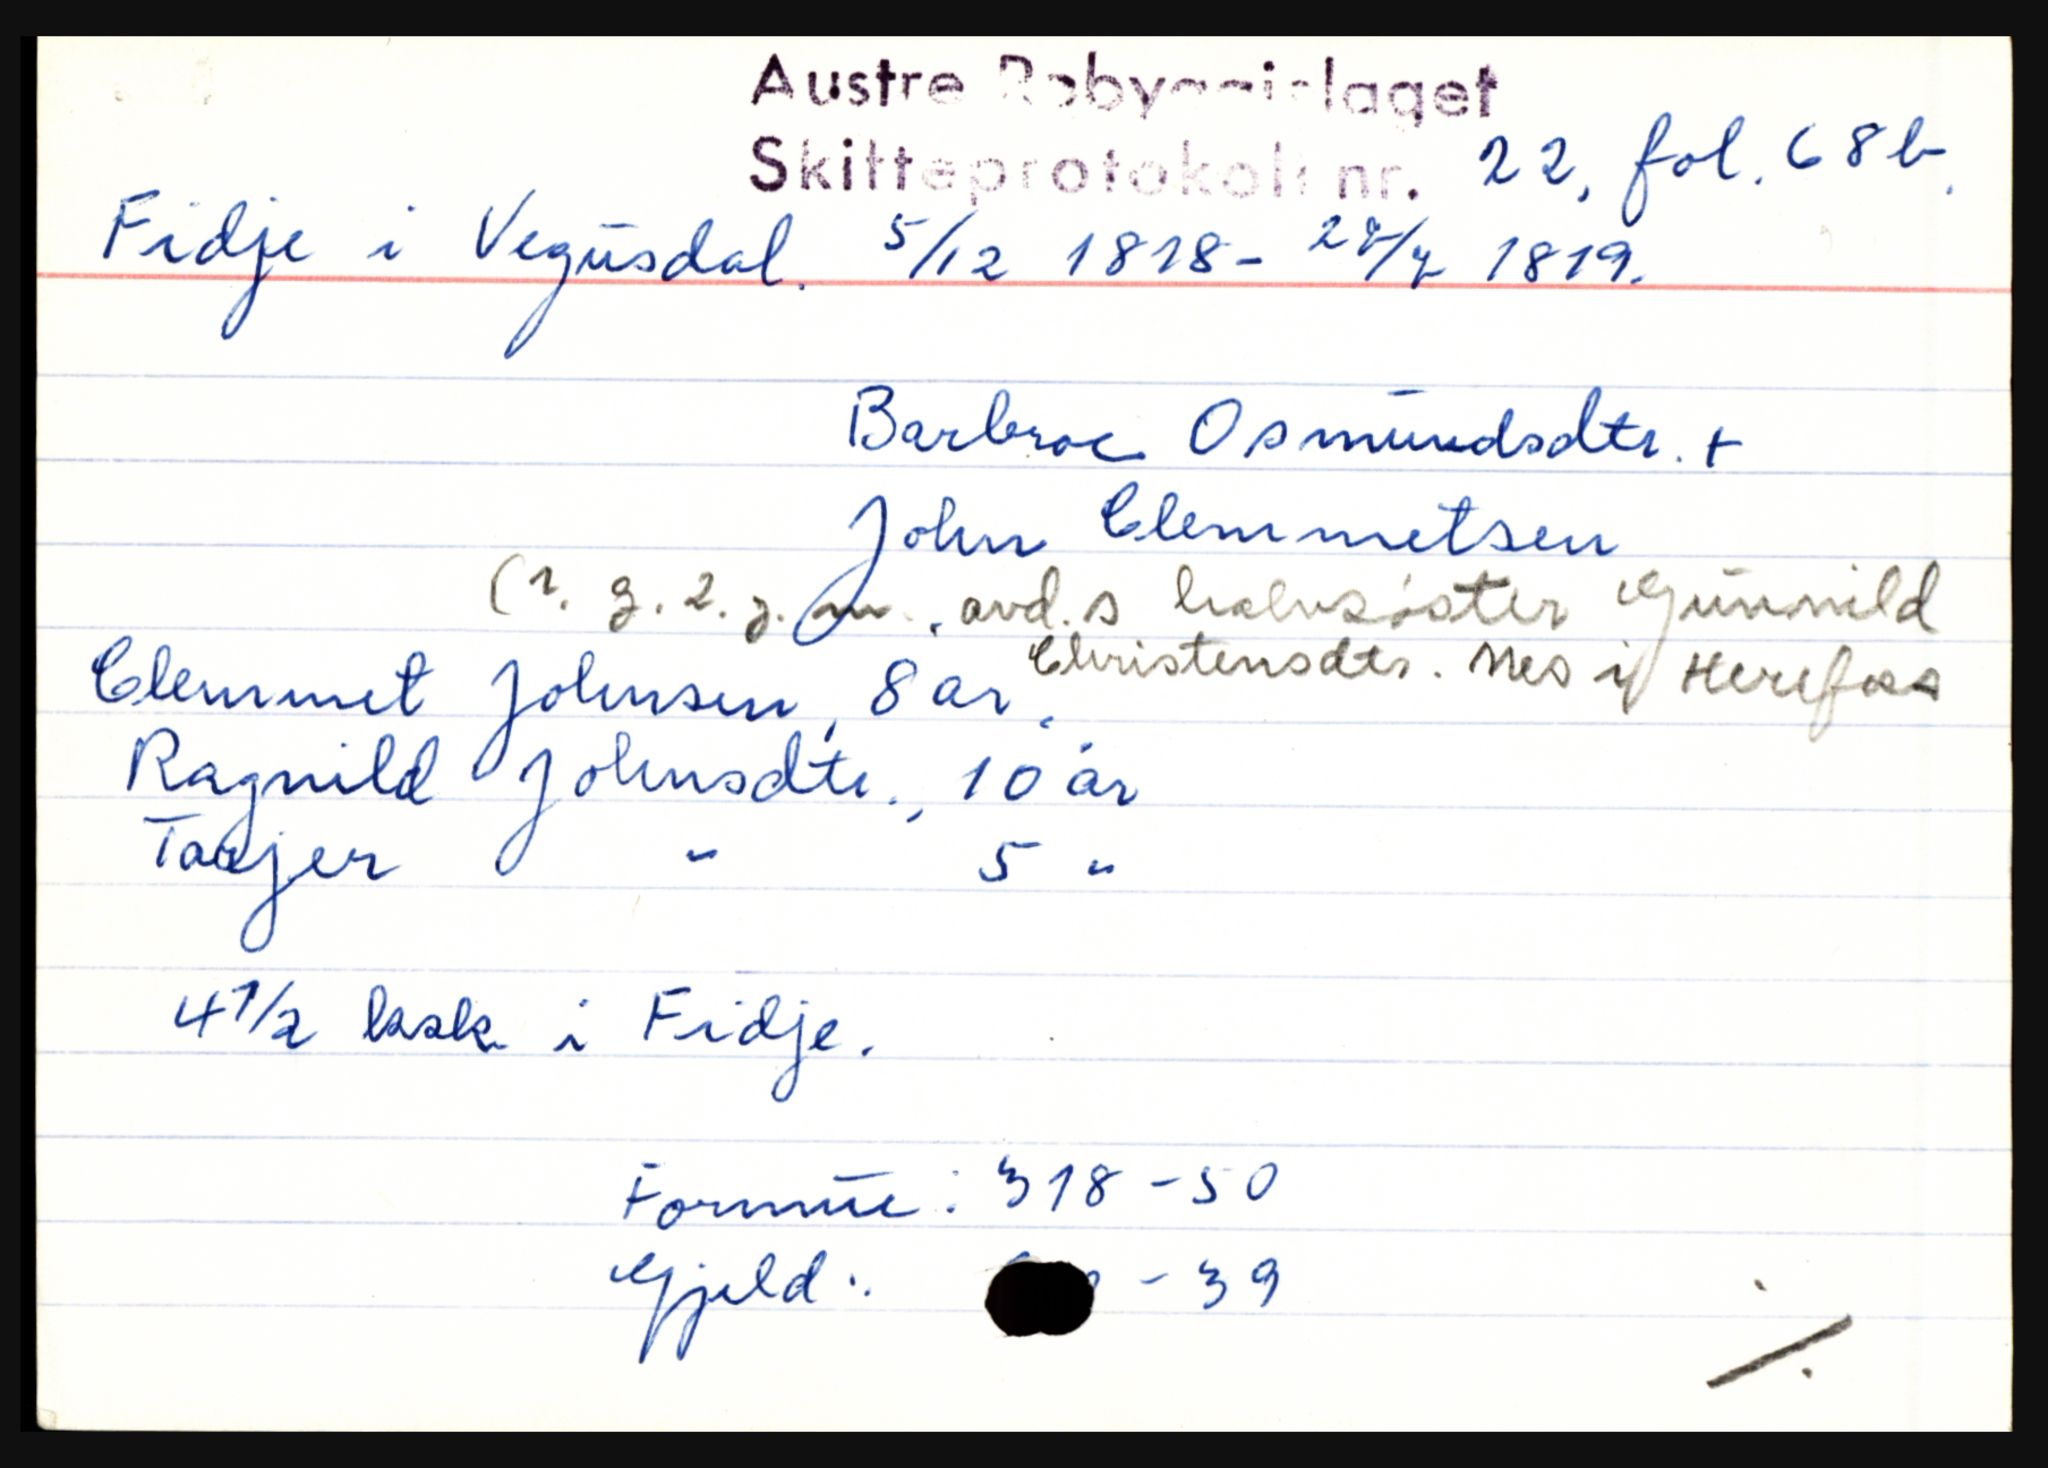 Austre Råbyggjelaget
Skifteprotokoll nr. 22, fol. 68b.
Fidje i Vegusdal. 5/12 1818 - 28/7 1819.
Barbroe Osmundsdtr. +
John Clemmetsen
(1. g. 2. g. m. avd.s halvsøster Gunnild
Christensdtr. Nes i Herefoss
Clemmet Johnsen, 8 år.
Ragnild Johnsdtr., 10 år
Tarjer " 5 "
4 1/2 kalvsk. i Fidje.
Formue: 318 - 50
Gjeld: - 39